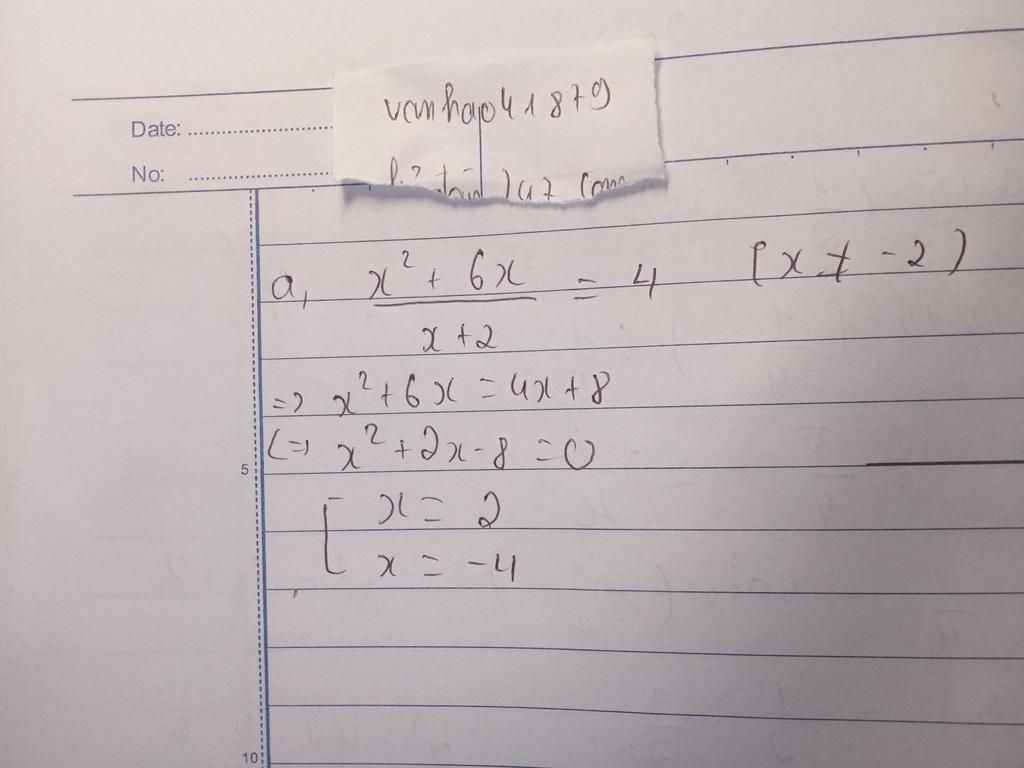 Date:
vanhap041879
No:
a, x² + 6x / x + 2 = 4 (x ≠ -2)
=> x² + 6x = 4x + 8
(=) x² + 2x - 8 = 0
5
[ x = 2
x = -4
10